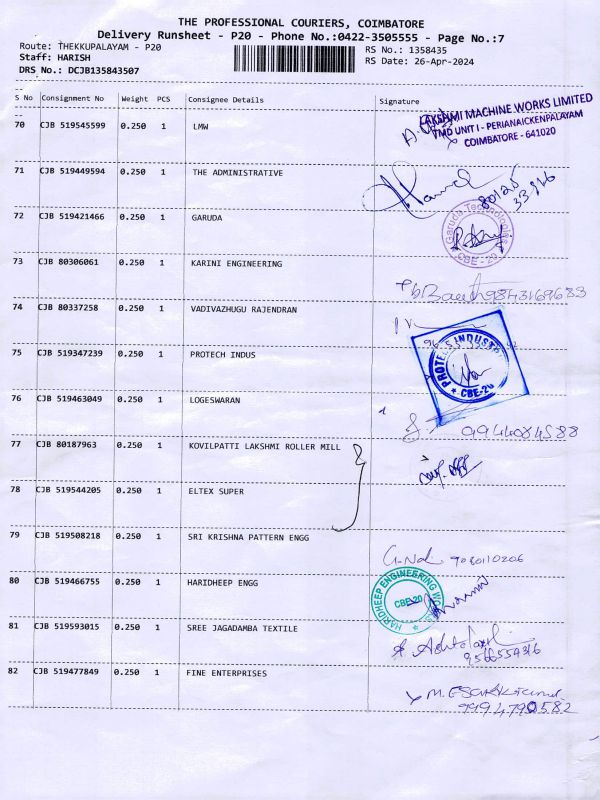 THE PROFESSIONAL COURIERS, COIMBATORE
Delivery Runsheet - P20 - Phone No.:0422-3505555 - Page No.:7
Route: THEKKUPALAYAM - P20
RS No.: 1358435
Staff: HARISH
RS Date: 26-Apr-2024
DRS No.: DCJB135843507
S No Consignment No Weight PCS Consignee Details Signature
70 CJB 519545599 0.250 1 LMW
LAKSHMI MACHINE WORKS LIMITED
TMD UNIT I - PERIANAICKENPALAYAM
COIMBATORE - 641020
71 CJB 519449594 0.250 1 THE ADMINISTRATIVE
80125
72 CJB 519421466 0.250 1 GARUDA
Garuda Technologies
CBE - 20
73 CJB 80306061 0.250 1 KARINI ENGINEERING
9843169683
74 CJB 80337258 0.250 1 VADIVAZHUGU RAJENDRAN
75 CJB 519347239 0.250 1 PROTECH INDUS
PROTECH INDUSTR
CBE-20
76 CJB 519463049 0.250 1 LOGESWARAN
9944084588
77 CJB 80187963 0.250 1 KOVILPATTI LAKSHMI ROLLER MILL
78 CJB 519544205 0.250 1 ELTEX SUPER
79 CJB 519508218 0.250 1 SRI KRISHNA PATTERN ENGG
9080110206
80 CJB 519466755 0.250 1 HARIDHEEP ENGG
HARIDHEEP ENGINEERING WORKS
CBE-20
81 CJB 519593015 0.250 1 SREE JAGADAMBA TEXTILE
82 CJB 519477849 0.250 1 FINE ENTERPRISES
9994790582